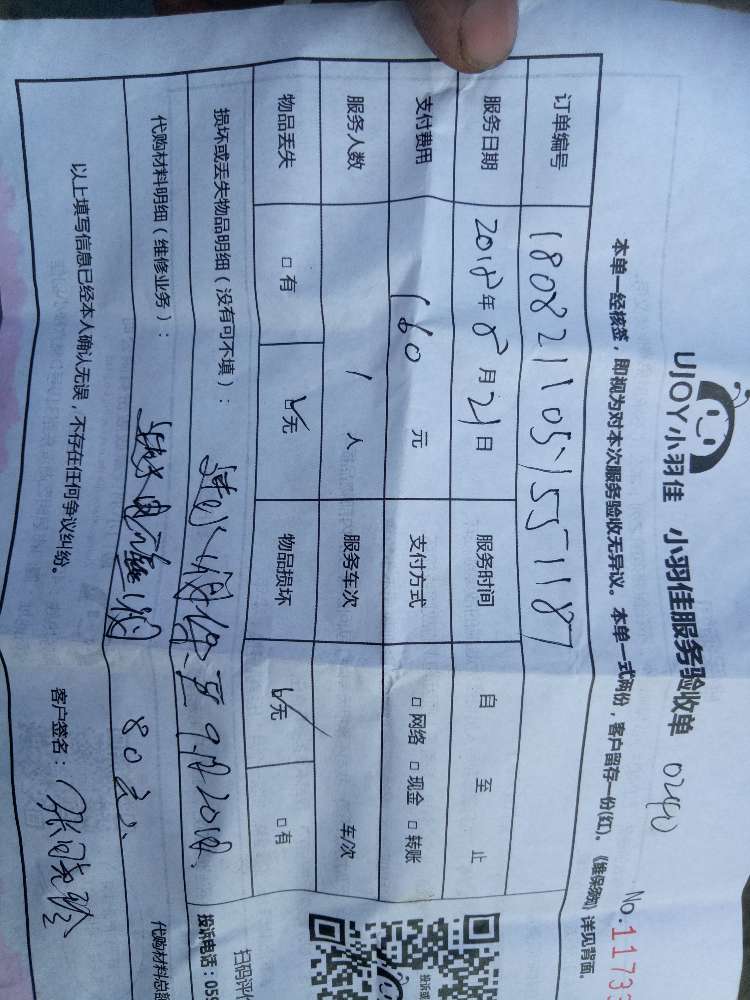 UJOY小羽佳 小羽佳服务验收单
No.11735
本单一经核签，即视为对本次服务验收无异议。本单一式两份，客户留存一份(红)。《维保须知》详见背面。
订单编号 180821105155118
服务日期 2018年8月21日 服务时间 自 至 止
支付费用 160元 支付方式 □网络 □现金 □转账
服务人数 1人 服务车次 车次
物品丢失 □有 ☑无 物品损坏 ☑无 □有
损坏或丢失物品明细（没有可不填）：
代购材料明细（维修业务）： 80元
代购材料总
以上填写信息已经本人确认无误，不存在任何争议纠纷。
客户签名：
扫码评价
投诉电话：059